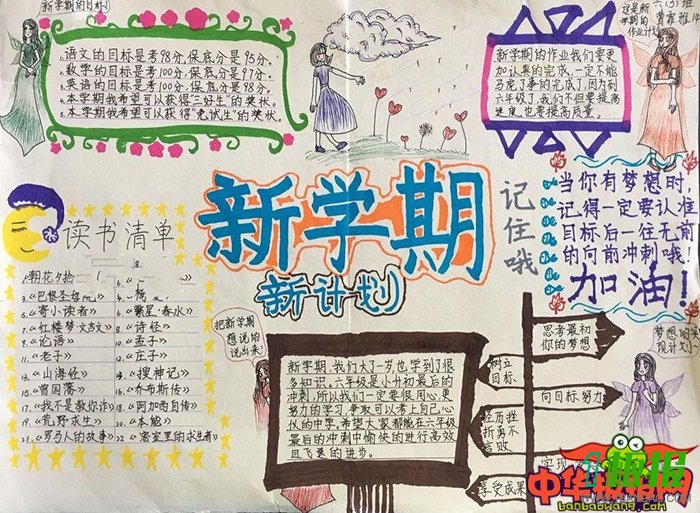 新学期的目标
1.语文的目标是考98分,保底分是95分.
2.数学的目标是考100分,保底分是97分.
3.英语的目标是考100分,保底分是98分.
4.本学期我希望可以获得"三好生"的奖状.
5.本学期我希望可以获得"免试生"的奖状.
六(3)班
这是新学期的作业计划
新学期的作业我们要更
加认真的完成,一定不能
马虎了事的完成了,因为到
六年级了,我们不但要提高
速度,也要提高质量。
新学期
新计划
记住哦
当你有梦想时,
记得一定要认准
目标后一往无前
的向前冲刺哦!
加油!
读书清单
1.朝花夕拾
3.《巴黎圣母院》
5.《寄小读者》
6.《繁星·春水》
7.《红楼梦》
8.《诗经》
9.《论语》
10.《孟子》
11.《老子》
12.《庄子》
13.《山海经》
14.《搜神记》
15.《曾国藩》
16.《乔布斯传》
17.《我不是教你诈》
18.《阿加西自传》
19.《荒野求生》
20.《本能》
21.《罗马人的故事》
22.《密室里的求生者》
把新学期
想说的
说出来
新学期,我们大了一岁,也学到了很
多知识。六年级是小升初最后的
冲刺,所以我们一定要很用心更
努力的学习,争取可以考上自己心
仪的中学,希望大家都能在六年级
最后的冲刺中愉快的进行,高效
且飞速的进步。
思考最初
你的梦想
树立
目标
向目标努力
经历挫
折勇不
言败
实现
享受成果
中华报
板报
banbaowang.com